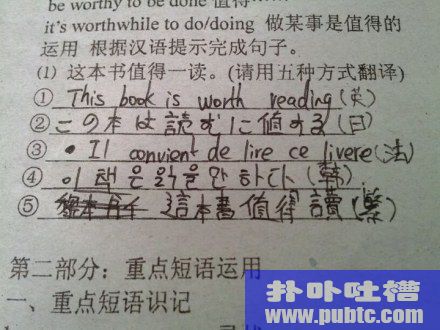 be worthy to be done 值得
it's worthwhile to do/doing 做某事是值得的
运用 根据汉语提示完成句子。
(1) 这本书值得一读。(请用五种方式翻译)
① This book is worth reading (英)
② この本は読むに値する (日)
③ • Il convient de lire ce livere (法)
④ 이 책은 읽을만 하다 (韩)
⑤ 這本書值得讀 (繁)
第二部分：重点短语运用
一、重点短语识记
扑卟吐槽
www.pubtc.com